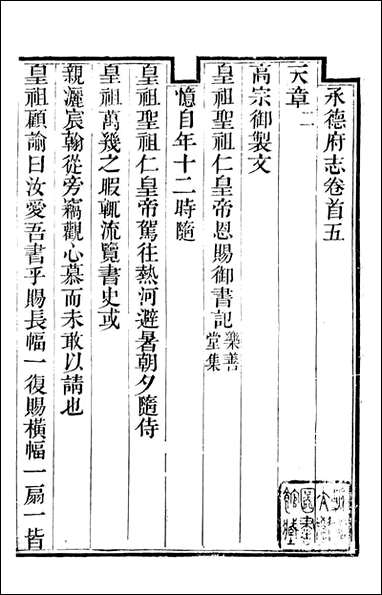 永德府志卷首五
天章二
高宗御製文
皇祖聖祖仁皇帝恩賜御書記樂善堂集
憶自年十二時隨
皇祖聖祖仁皇帝駕往熱河避暑朝夕隨侍
皇祖萬幾之暇輒流覽書史或
親灑宸翰從旁竊觀心慕而未敢以請也
皇祖顧諭曰汝愛吾書乎賜長幅一復賜橫幅一扇一皆